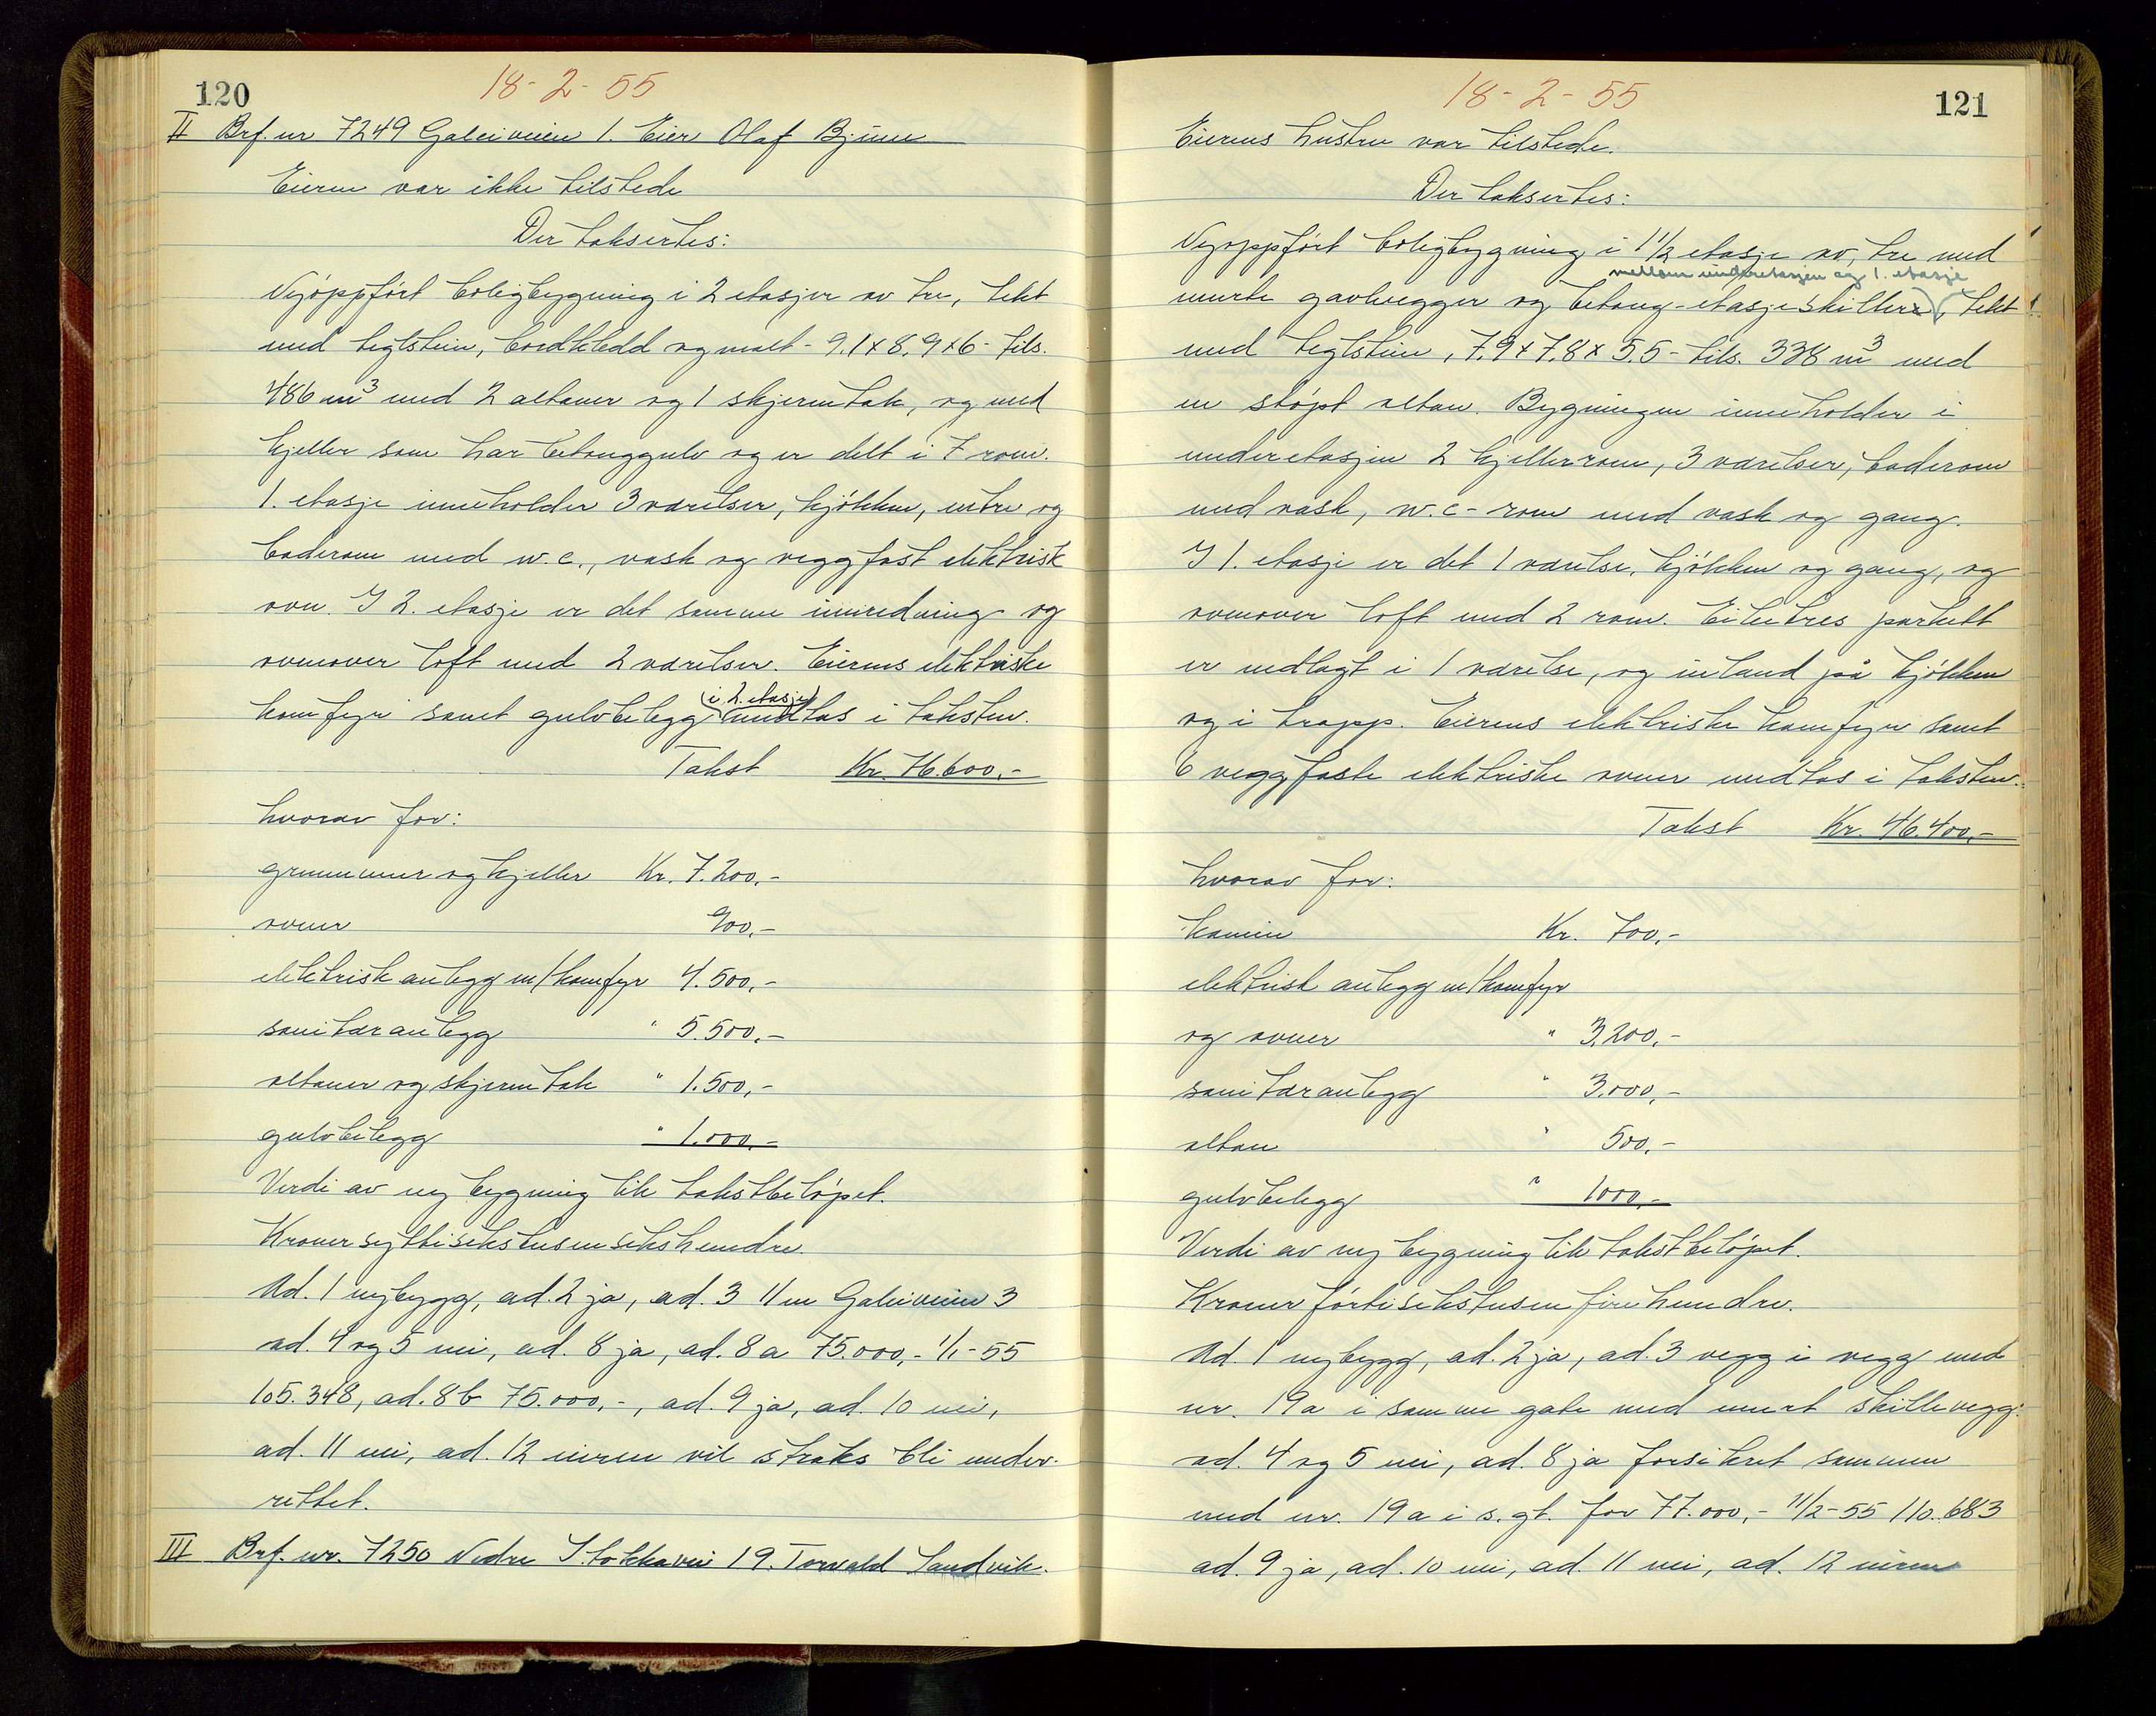 120
18-2-55
II Brf. nr 7249 Galeiveien 1. Eier Olaf
Eieren var ikke tilstede
Der taksertes:
Nyoppført boligbygning i 2 etasjer av tre, tekt
med teglstein, bordkledd og malt - 9,1 x 8,9 x 6 - tils.
486 m³ med 2 altaner og 1 skjermtak, og med
kjeller som har betonggulv og er delt i 7 rom.
1. etasje inneholder 3 værelser, kjøkken, entre og
baderom med w.c., vask og veggfast elektrisk
ovn. I 2. etasje er det samme innredning og
ovenover loft med 2 værelser. Eierens elektriske
(i 2. etasje)
komfyr samt gulvbelegg medtas i taksten.
Takst Kr. 76.600,-
hvorav for:
grunnmur og kjeller Kr. 7.200,-
ovner 900,-
elektrisk anlegg m/komfyr 4.500,-
sanitæranlegg " 5.500,-
altaner og skjermtak " 1.500,-
gulvbelegg " 1.000,-
Verdi av ny bygning lik takstbeløpet.
Kroner syttisekstusensekshundre.
Ad. 1 nybygg, ad. 2 ja, ad. 3 11 m Galeiveien 3
ad. 4 og 5 nei, ad. 8 ja, ad. 8a 75.000,- 1/1-55
105.348, ad. 8b 75.000,-, ad. 9 ja, ad. 10 nei,
ad. 11 nei, ad. 12 eieren vil straks bli under-
rettet.
III Brf. nr. 7250 Nedre Stokkavei 19. Torvald Sandvik.
18-2-55
121
Eierens hustru var tilstede.
Der taksertes:
Nyoppført boligbygning i 1 1/2 etasje av tre med
mellom underetasjen og 1. etasje
murte gavlvegger og betong-etasjeskiller, tekt
med teglstein, 7,9 x 7,8 x 5,5 - tils. 338 m³ med
en støpt altan. Bygningen inneholder i
underetasjen 2 kjellerrom, 3 værelser, baderom
med vask, w.c-rom med vask og gang.
I 1. etasje er det 1 værelse, kjøkken og gang, og
ovenover loft med 2 rom. Eiketres parkett
er nedlagt i 1 værelse, og inlaid på kjøkken
og i trapp. Eierens elektriske komfyr samt
6 veggfaste elektriske ovner medtas i taksten.
Takst Kr. 46.400,-
hvorav for:
kamin Kr. 700,-
elektrisk anlegg m/komfyr
og ovner " 3.200,-
sanitæranlegg " 3.000,-
altan " 500,-
gulvbelegg " 1000,-
Verdi av ny bygning lik takstbeløpet.
Kroner førtisekstusenfirehundre.
Ad. 1 nybygg, ad. 2 ja, ad. 3 vegg i vegg med
nr. 19a i samme gate med murt skillevegg.
ad. 4 og 5 nei, ad. 8 ja forsikret sammen
med nr. 19a i s. gt. for 77.000,- 11/2-55 110.683
ad. 9 ja, ad. 10 nei, ad. 11 nei, ad. 12 eieren